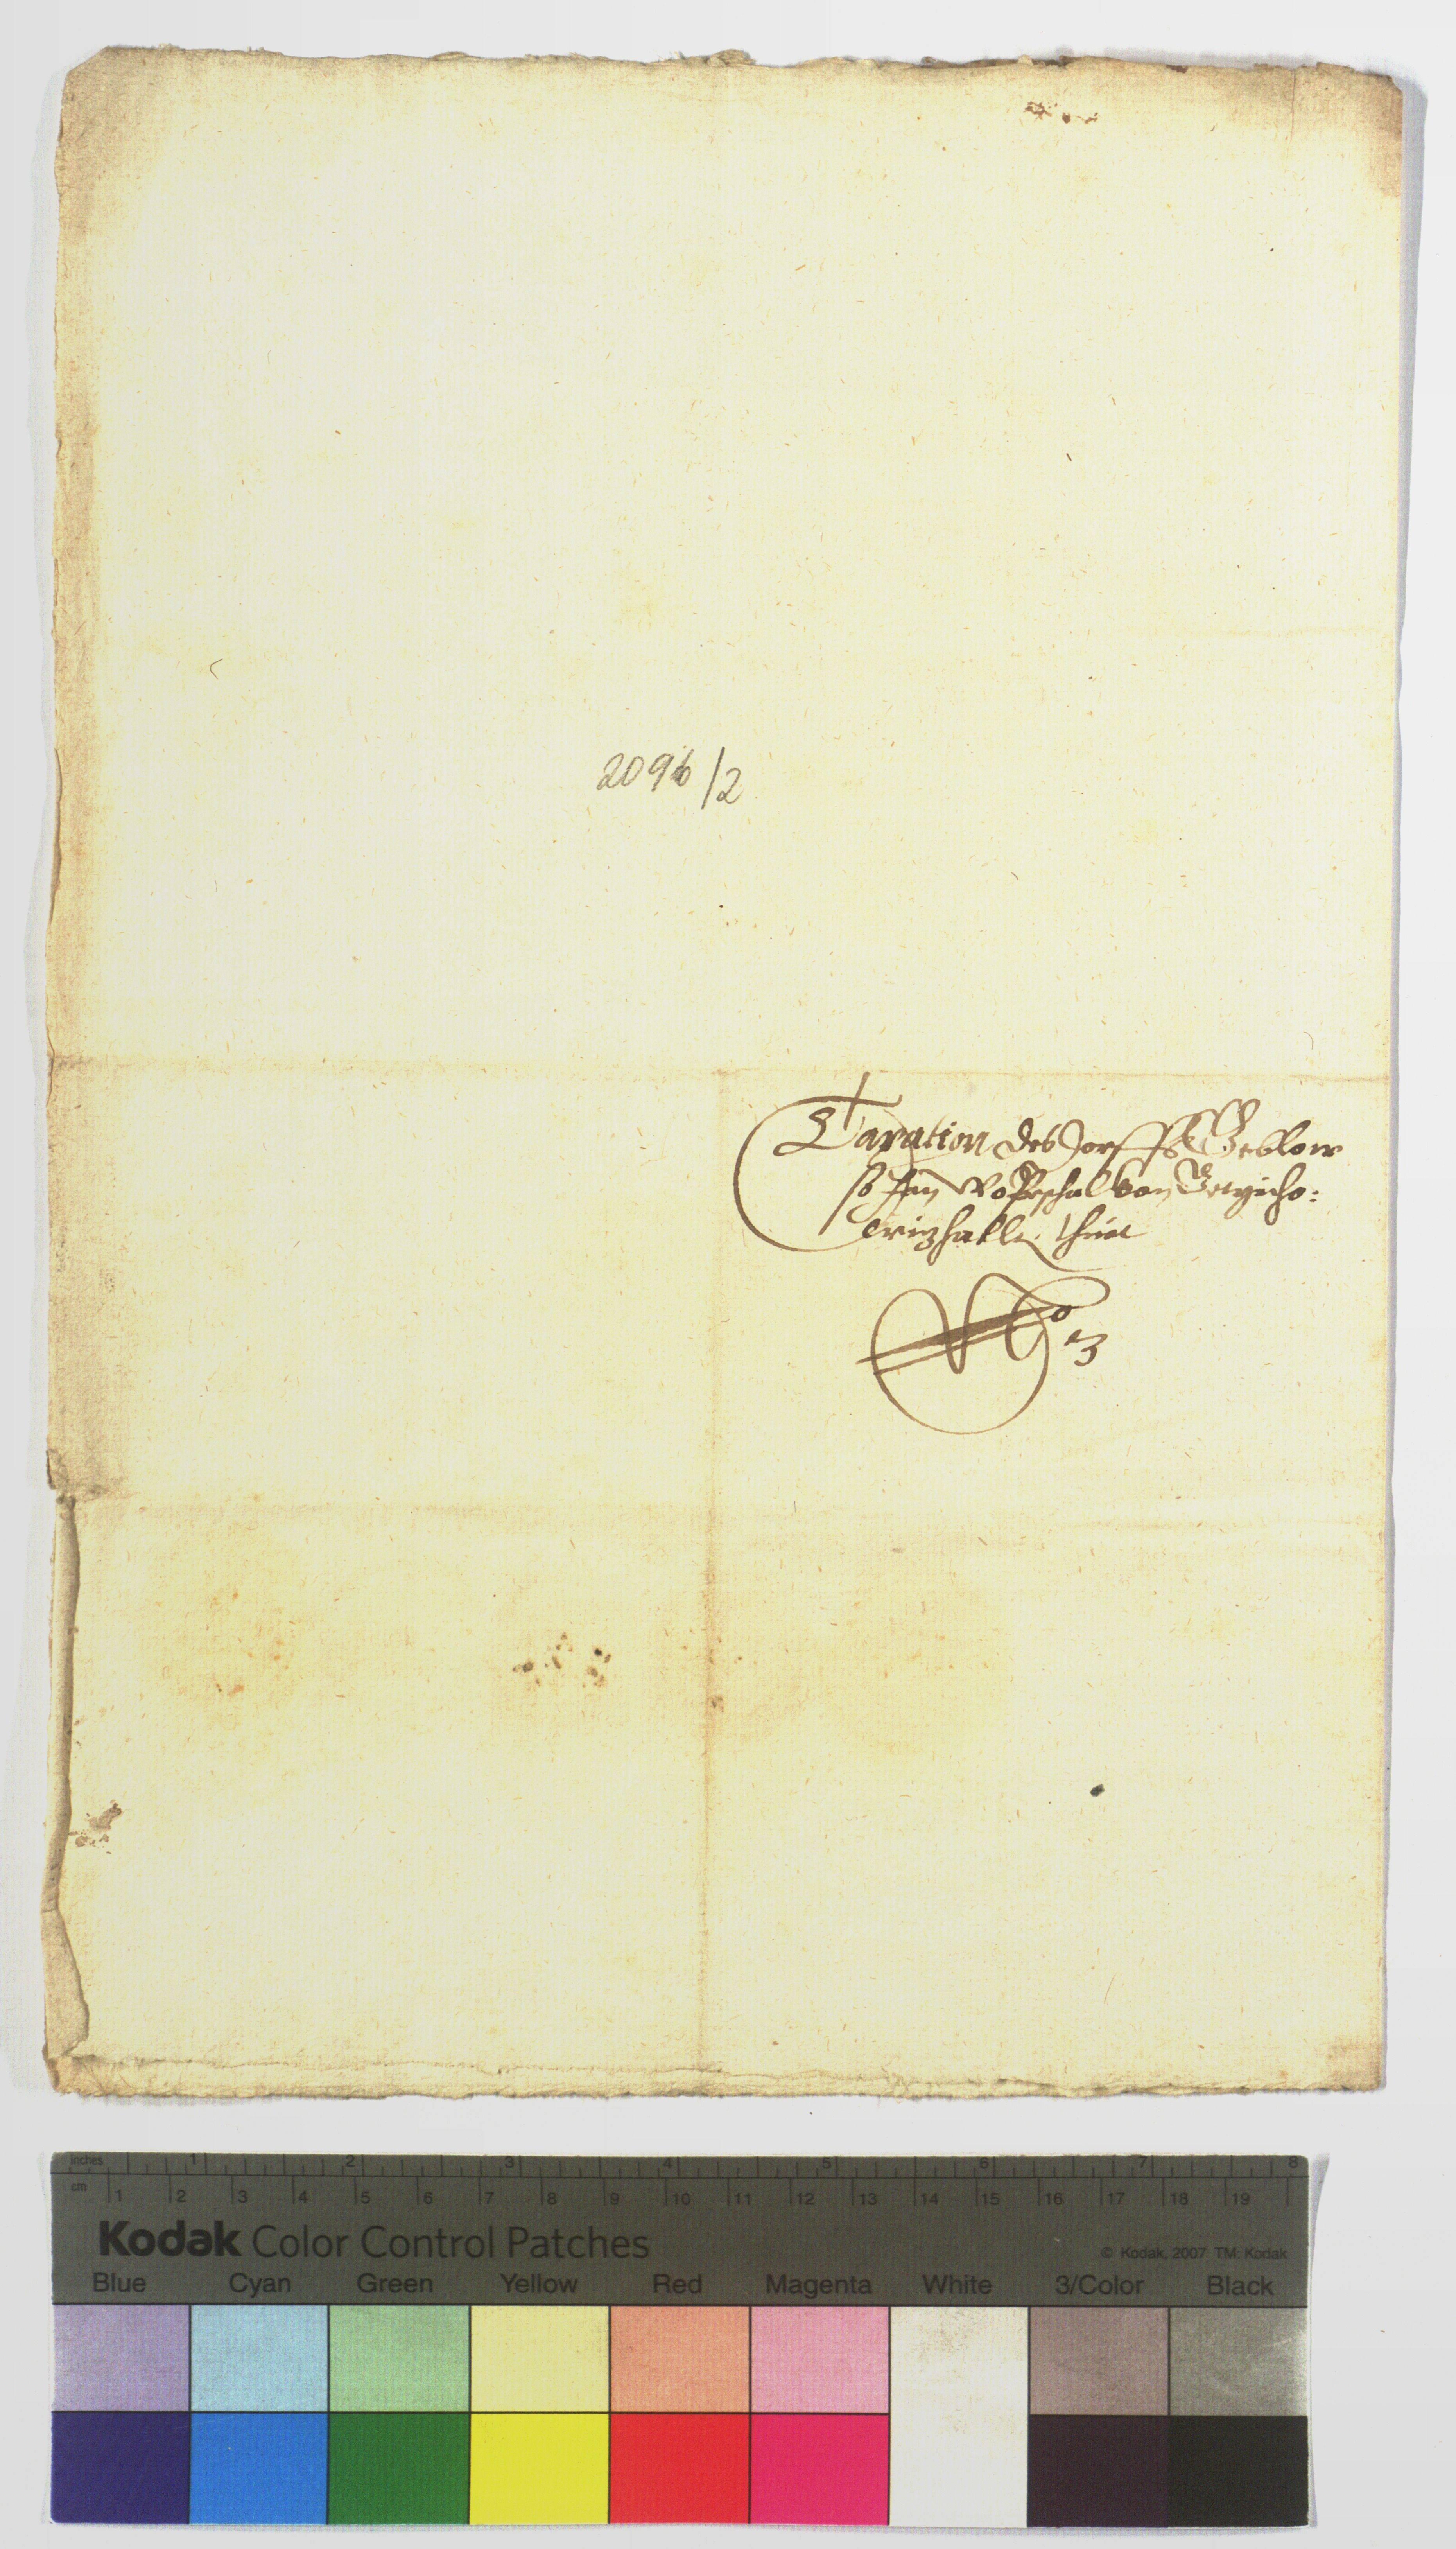 2096/2
Taxation des dorffs
so Jan von
thuet
No
3
inches 1 2 3 4 5 6 7 8
cm 1 2 3 4 5 6 7 8 9 10 11 12 13 14 15 16 17 18 19
Kodak Color Control Patches
© Kodak, 2007 TM: Kodak
Blue Cyan Green Yellow Red Magenta White 3/Color Black